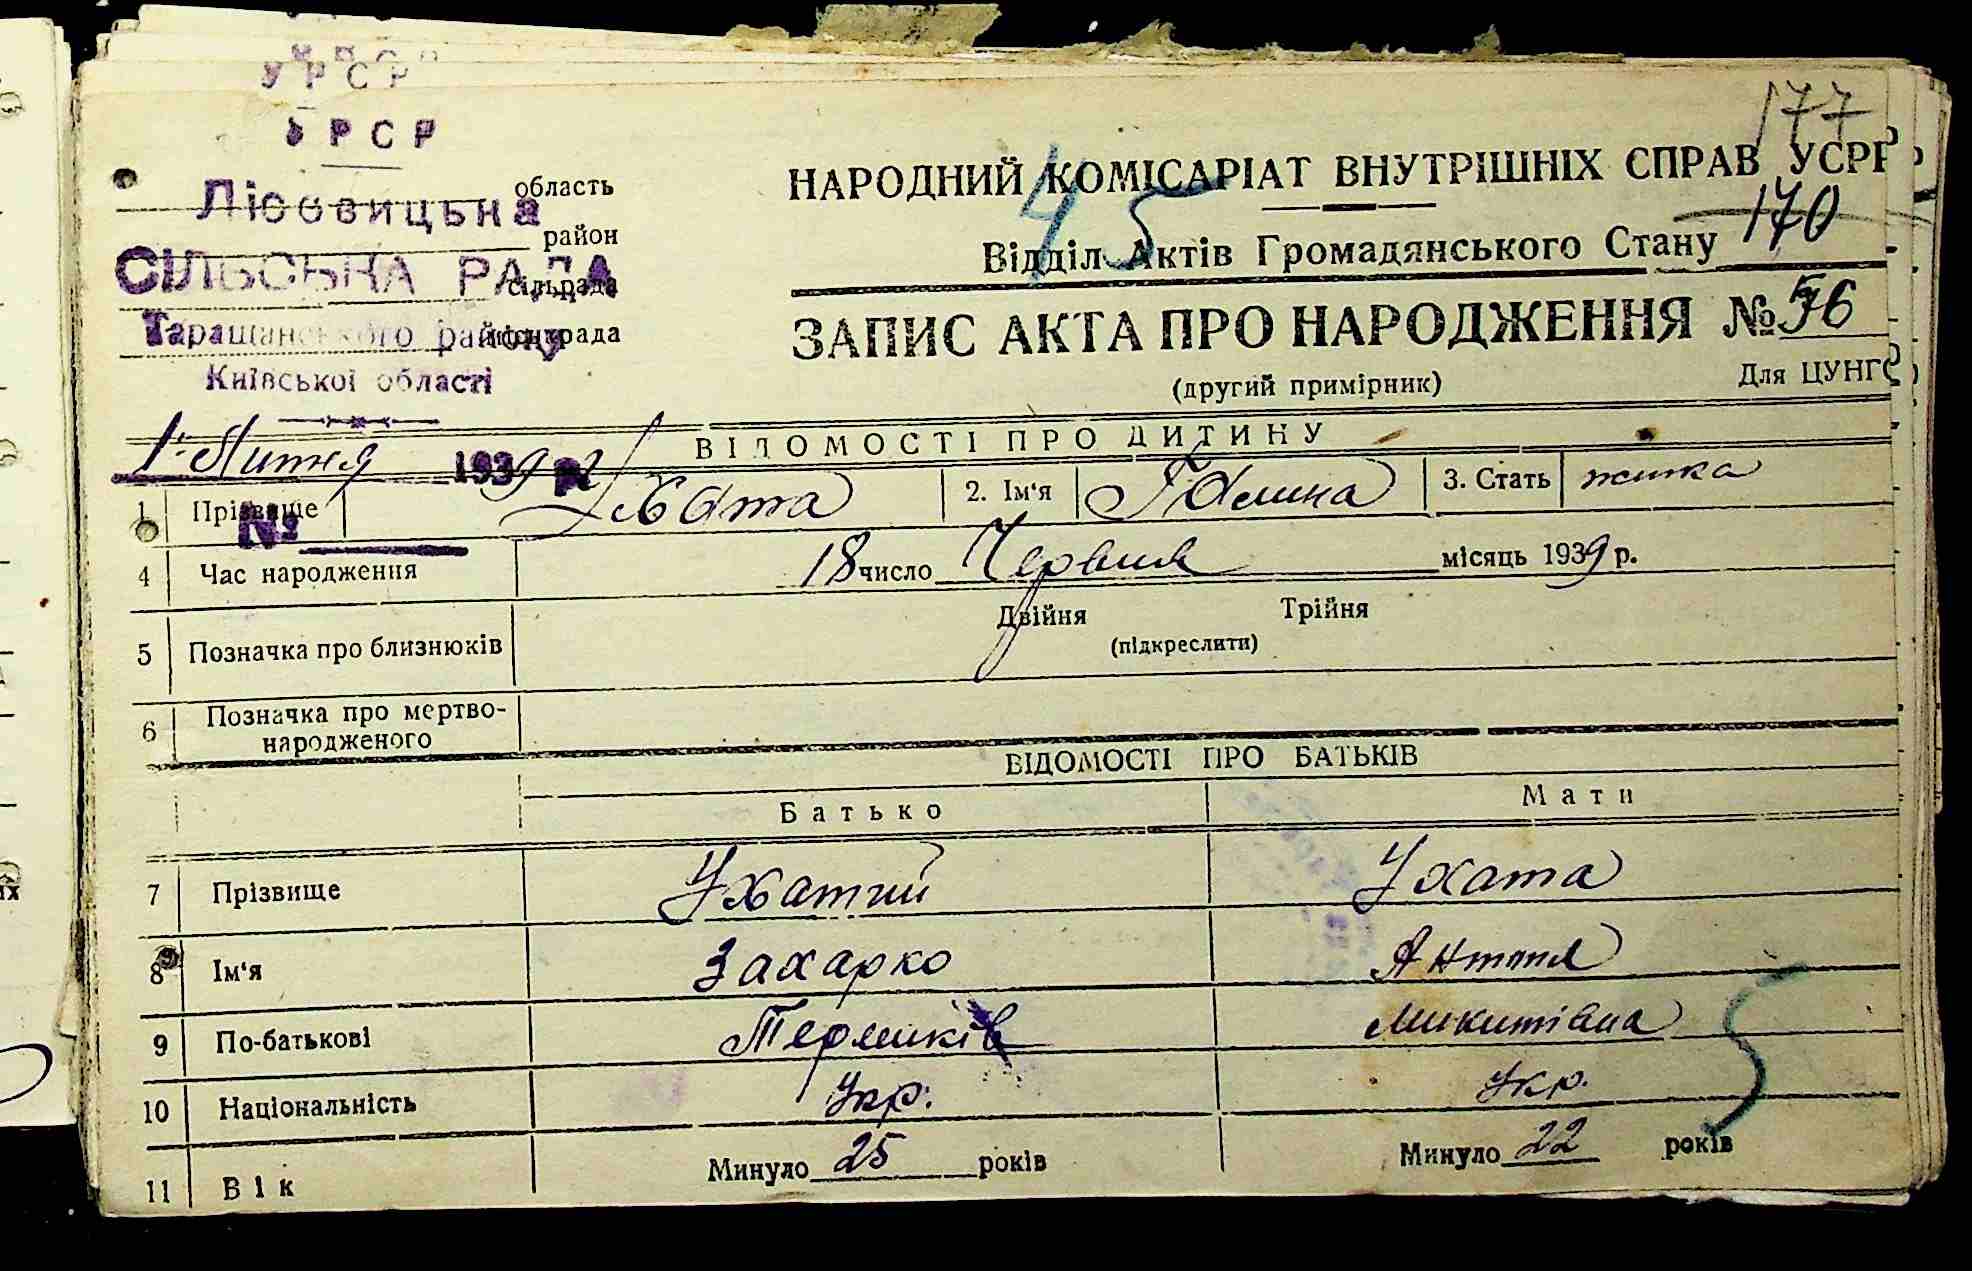 УРСР
УРСР
177
Лісовицька
область
НАРОДНИЙ КОМІСАРІАТ ВНУТРІШНІХ СПРАВ УСРР
45
170
район
Відділ Актів Громадянського Стану
СІЛЬСЬКА РАДА
сільрада
ЗАПИС АКТА ПРО НАРОДЖЕННЯ № 56
Таращанського району
міськрада
Київської області
(другий примірник)
Для ЦУНГО
1 Липня 1939 р
ВІДОМОСТІ ПРО ДИТИНУ
1 Прізвище Ухата 2. Ім'я Галина 3. Стать жінка
№
4 Час народження 18 число Червня місяць 1939 р.
5 Позначка про близнюків Двійня Трійня
(підкреслити)
6 Позначка про мертво-
народженого
ВІДОМОСТІ ПРО БАТЬКІВ
Батько Мати
7 Прізвище Ухатий Ухата
8 Ім'я Захарко
9 По-батькові Микитівна
10 Національність Укр. Укр.
11 Вік Минуло 25 років Минуло 22 років
5